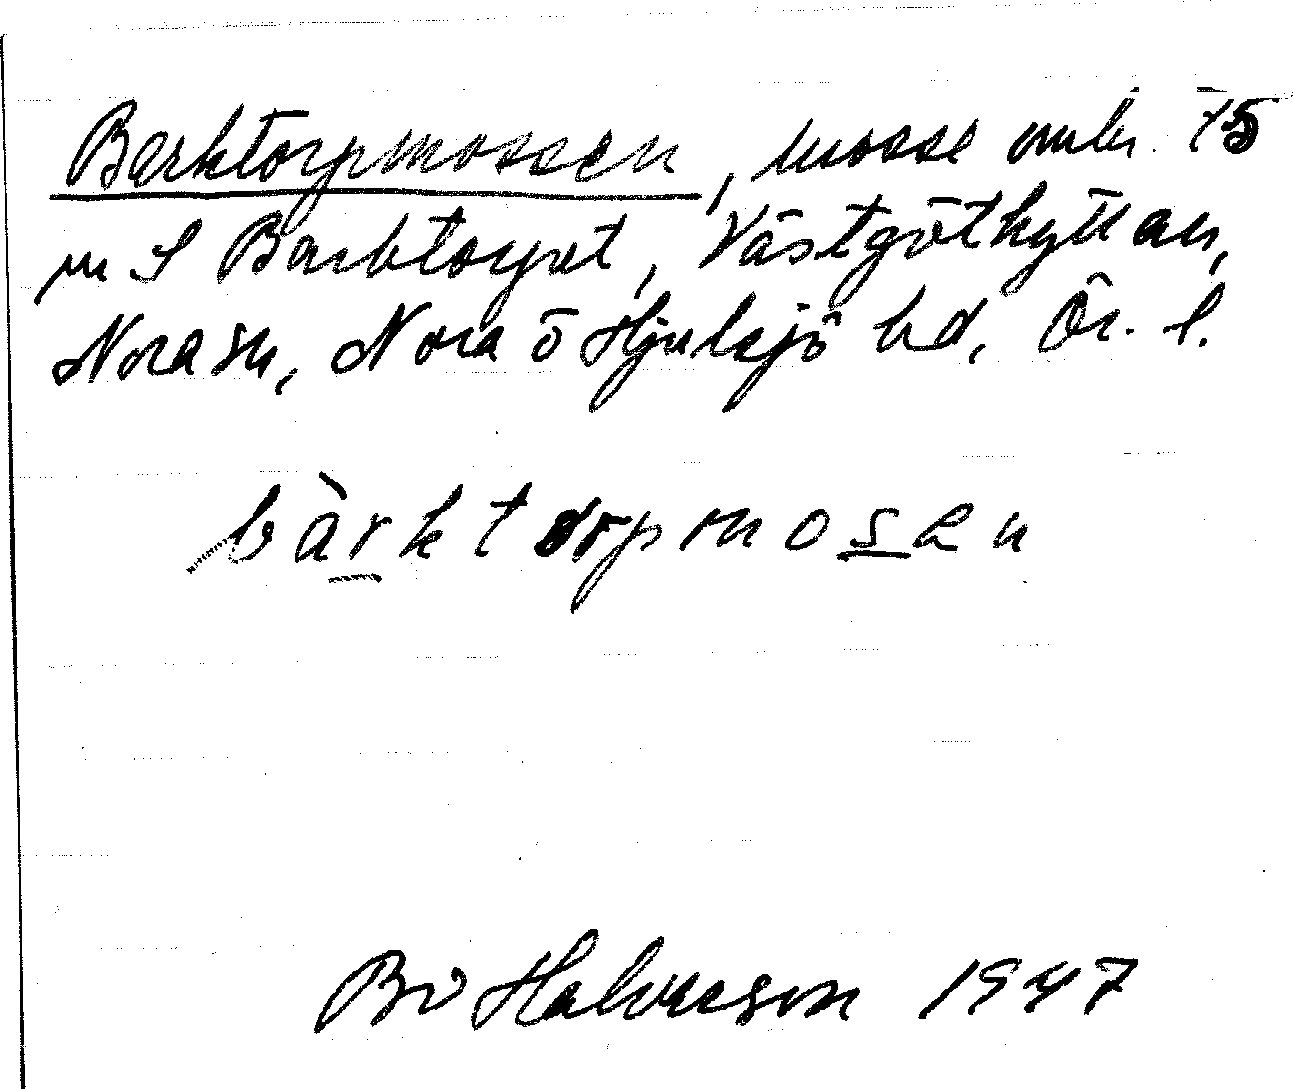 Barktorpmossen, mosse omkr. 75
m S Barktorpet, Västgöthyttan,
Nora sn, Nora ō Hjulsjö bd, Ör. l.
bàrktorpmosen
Bo Halvarsson 1947